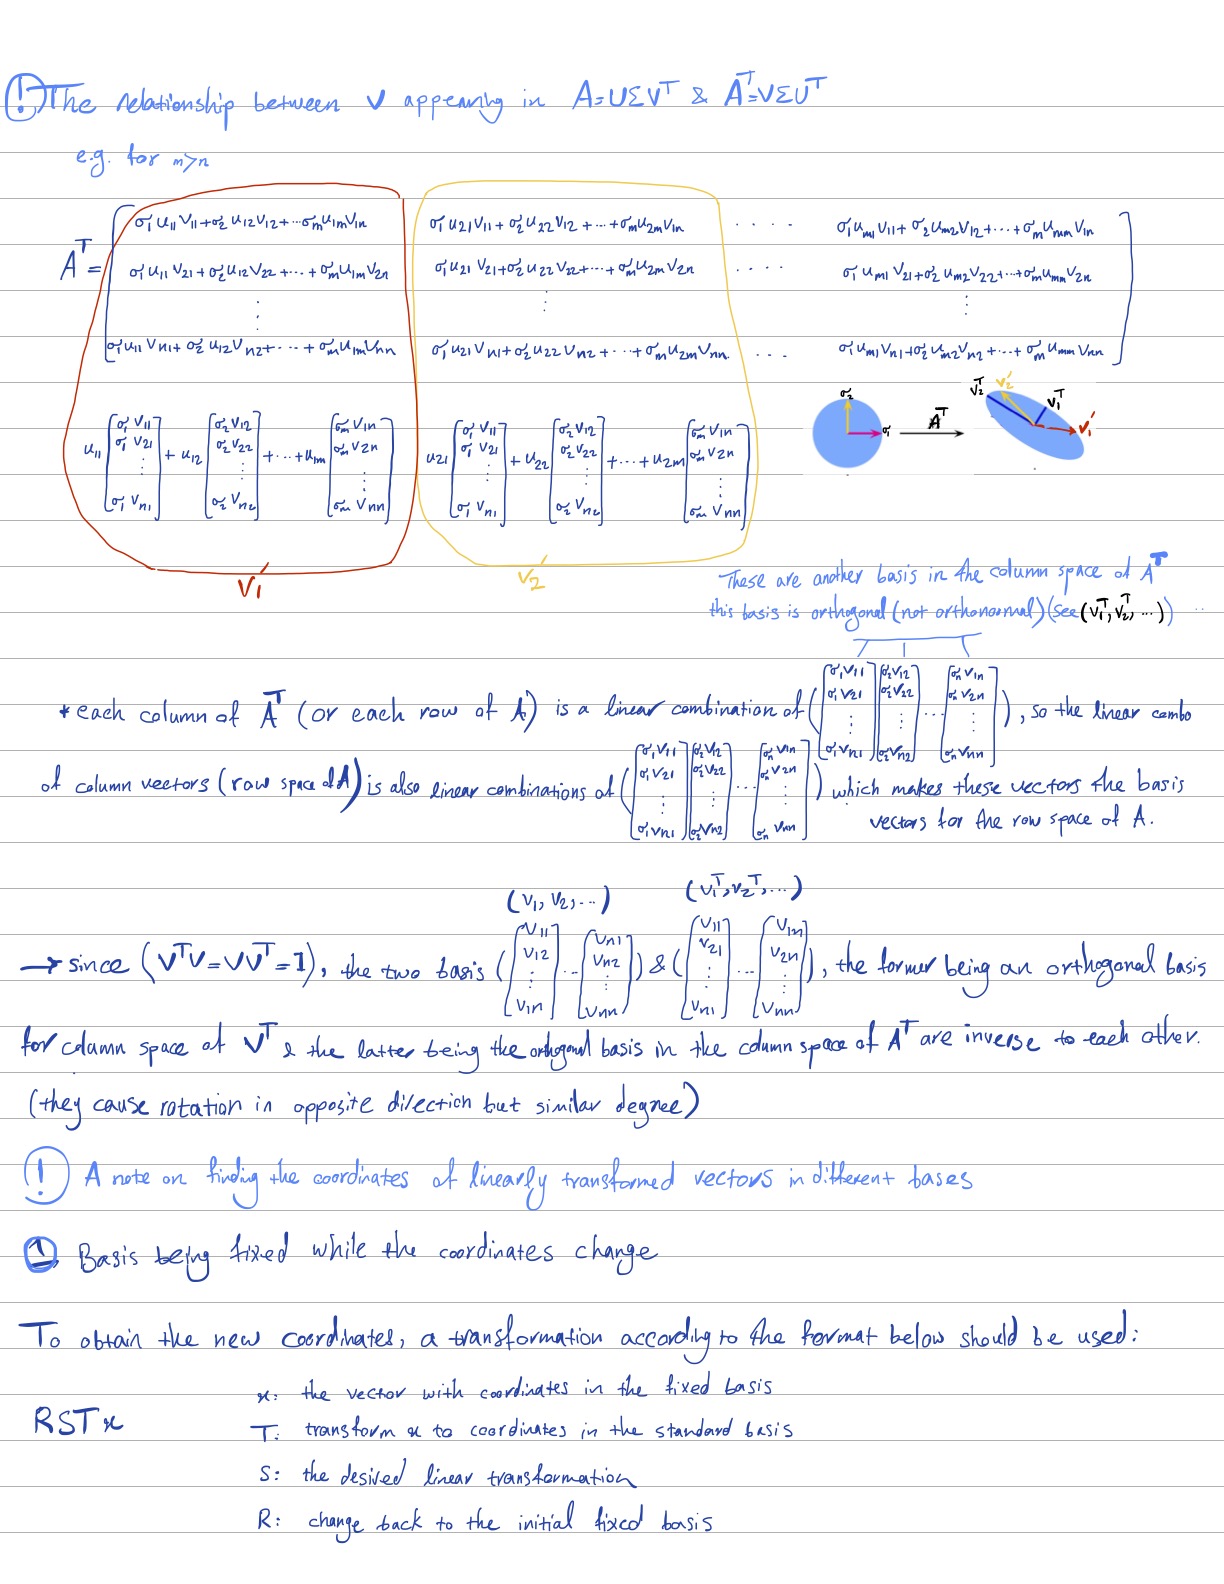 ! The relationship between V appearing in A=UΣVᵀ & Aᵀ=VΣUᵀ
e.g. for m>n
Aᵀ = [ σ₁u₁₁v₁₁+σ₂u₁₂v₁₂+···σₘu₁ₘv₁ₙ   σ₁u₂₁v₁₁+σ₂u₂₂v₁₂+···+σₘu₂ₘv₁ₙ   ····   σ₁uₘ₁v₁₁+σ₂uₘ₂v₁₂+···+σₘuₘₘv₁ₙ
σ₁u₁₁v₂₁+σ₂u₁₂v₂₂+···+σₘu₁ₘv₂ₙ   σ₁u₂₁v₂₁+σ₂u₂₂v₂₂+···+σₘu₂ₘv₂ₙ   ····   σ₁uₘ₁v₂₁+σ₂uₘ₂v₂₂+···+σₘuₘₘv₂ₙ
⋮   ⋮   ⋮
σ₁u₁₁vₙ₁+σ₂u₁₂vₙ₂+···+σₘu₁ₘvₙₙ   σ₁u₂₁vₙ₁+σ₂u₂₂vₙ₂+···+σₘu₂ₘvₙₙ   ···   σ₁uₘ₁vₙ₁+σ₂uₘ₂vₙ₂+···+σₘuₘₘvₙₙ ]
u₁₁ [σ₁v₁₁ σ₁v₂₁ ⋮ σ₁vₙ₁] + u₁₂ [σ₂v₁₂ σ₂v₂₂ ⋮ σ₂vₙ₂] +···+ u₁ₘ [σₘv₁ₙ σₘv₂ₙ ⋮ σₘvₙₙ]
u₂₁ [σ₁v₁₁ σ₁v₂₁ ⋮ σ₁vₙ₁] + u₂₂ [σ₂v₁₂ σ₂v₂₂ ⋮ σ₂vₙ₂] +···+ u₂ₘ [σₘv₁ₙ σₘv₂ₙ ⋮ σₘvₙₙ]
σ₂ σ₁ Aᵀ v₂ᵀ v₂′ v₁ᵀ v₁′
v₁′   v₂′
These are another basis in the column space of Aᵀ
this basis is orthogonal (not orthonormal) (see (v₁ᵀ, v₂ᵀ, ...))
* each column of Aᵀ (or each row of A) is a linear combination of ([σ₁v₁₁ σ₁v₂₁ ⋮ σ₁vₙ₁] [σ₂v₁₂ σ₂v₂₂ ⋮ σ₂vₙ₂] ··· [σₙv₁ₙ σₙv₂ₙ ⋮ σₙvₙₙ]), so the linear combo
of column vectors (row space of A) is also linear combinations of ([σ₁v₁₁ σ₁v₂₁ ⋮ σ₁vₙ₁] [σ₂v₁₂ σ₂v₂₂ ⋮ σ₂vₙ₂] ··· [σₙv₁ₙ σₙv₂ₙ ⋮ σₙvₙₙ]) which makes these vectors the basis
vectors for the row space of A.
(v₁, v₂, ...)   (v₁ᵀ, v₂ᵀ, ...)
→ since (VᵀV=VVᵀ=1), the two basis ([v₁₁ v₁₂ ⋮ v₁ₙ] ··· [vₙ₁ vₙ₂ ⋮ vₙₙ]) & ([v₁₁ v₂₁ ⋮ vₙ₁] ··· [v₁ₙ v₂ₙ ⋮ vₙₙ]), the former being an orthogonal basis
for column space of Vᵀ & the latter being the orthogonal basis in the column space of Aᵀ are inverse to each other.
(they cause rotation in opposite direction but similar degree)
! A note on finding the coordinates of linearly transformed vectors in different bases
1. Basis being fixed while the coordinates change
To obtain the new coordinates, a transformation according to the format below should be used:
x: the vector with coordinates in the fixed basis
RSTx
T: transform x to coordinates in the standard basis
S: the desired linear transformation
R: change back to the initial fixed basis